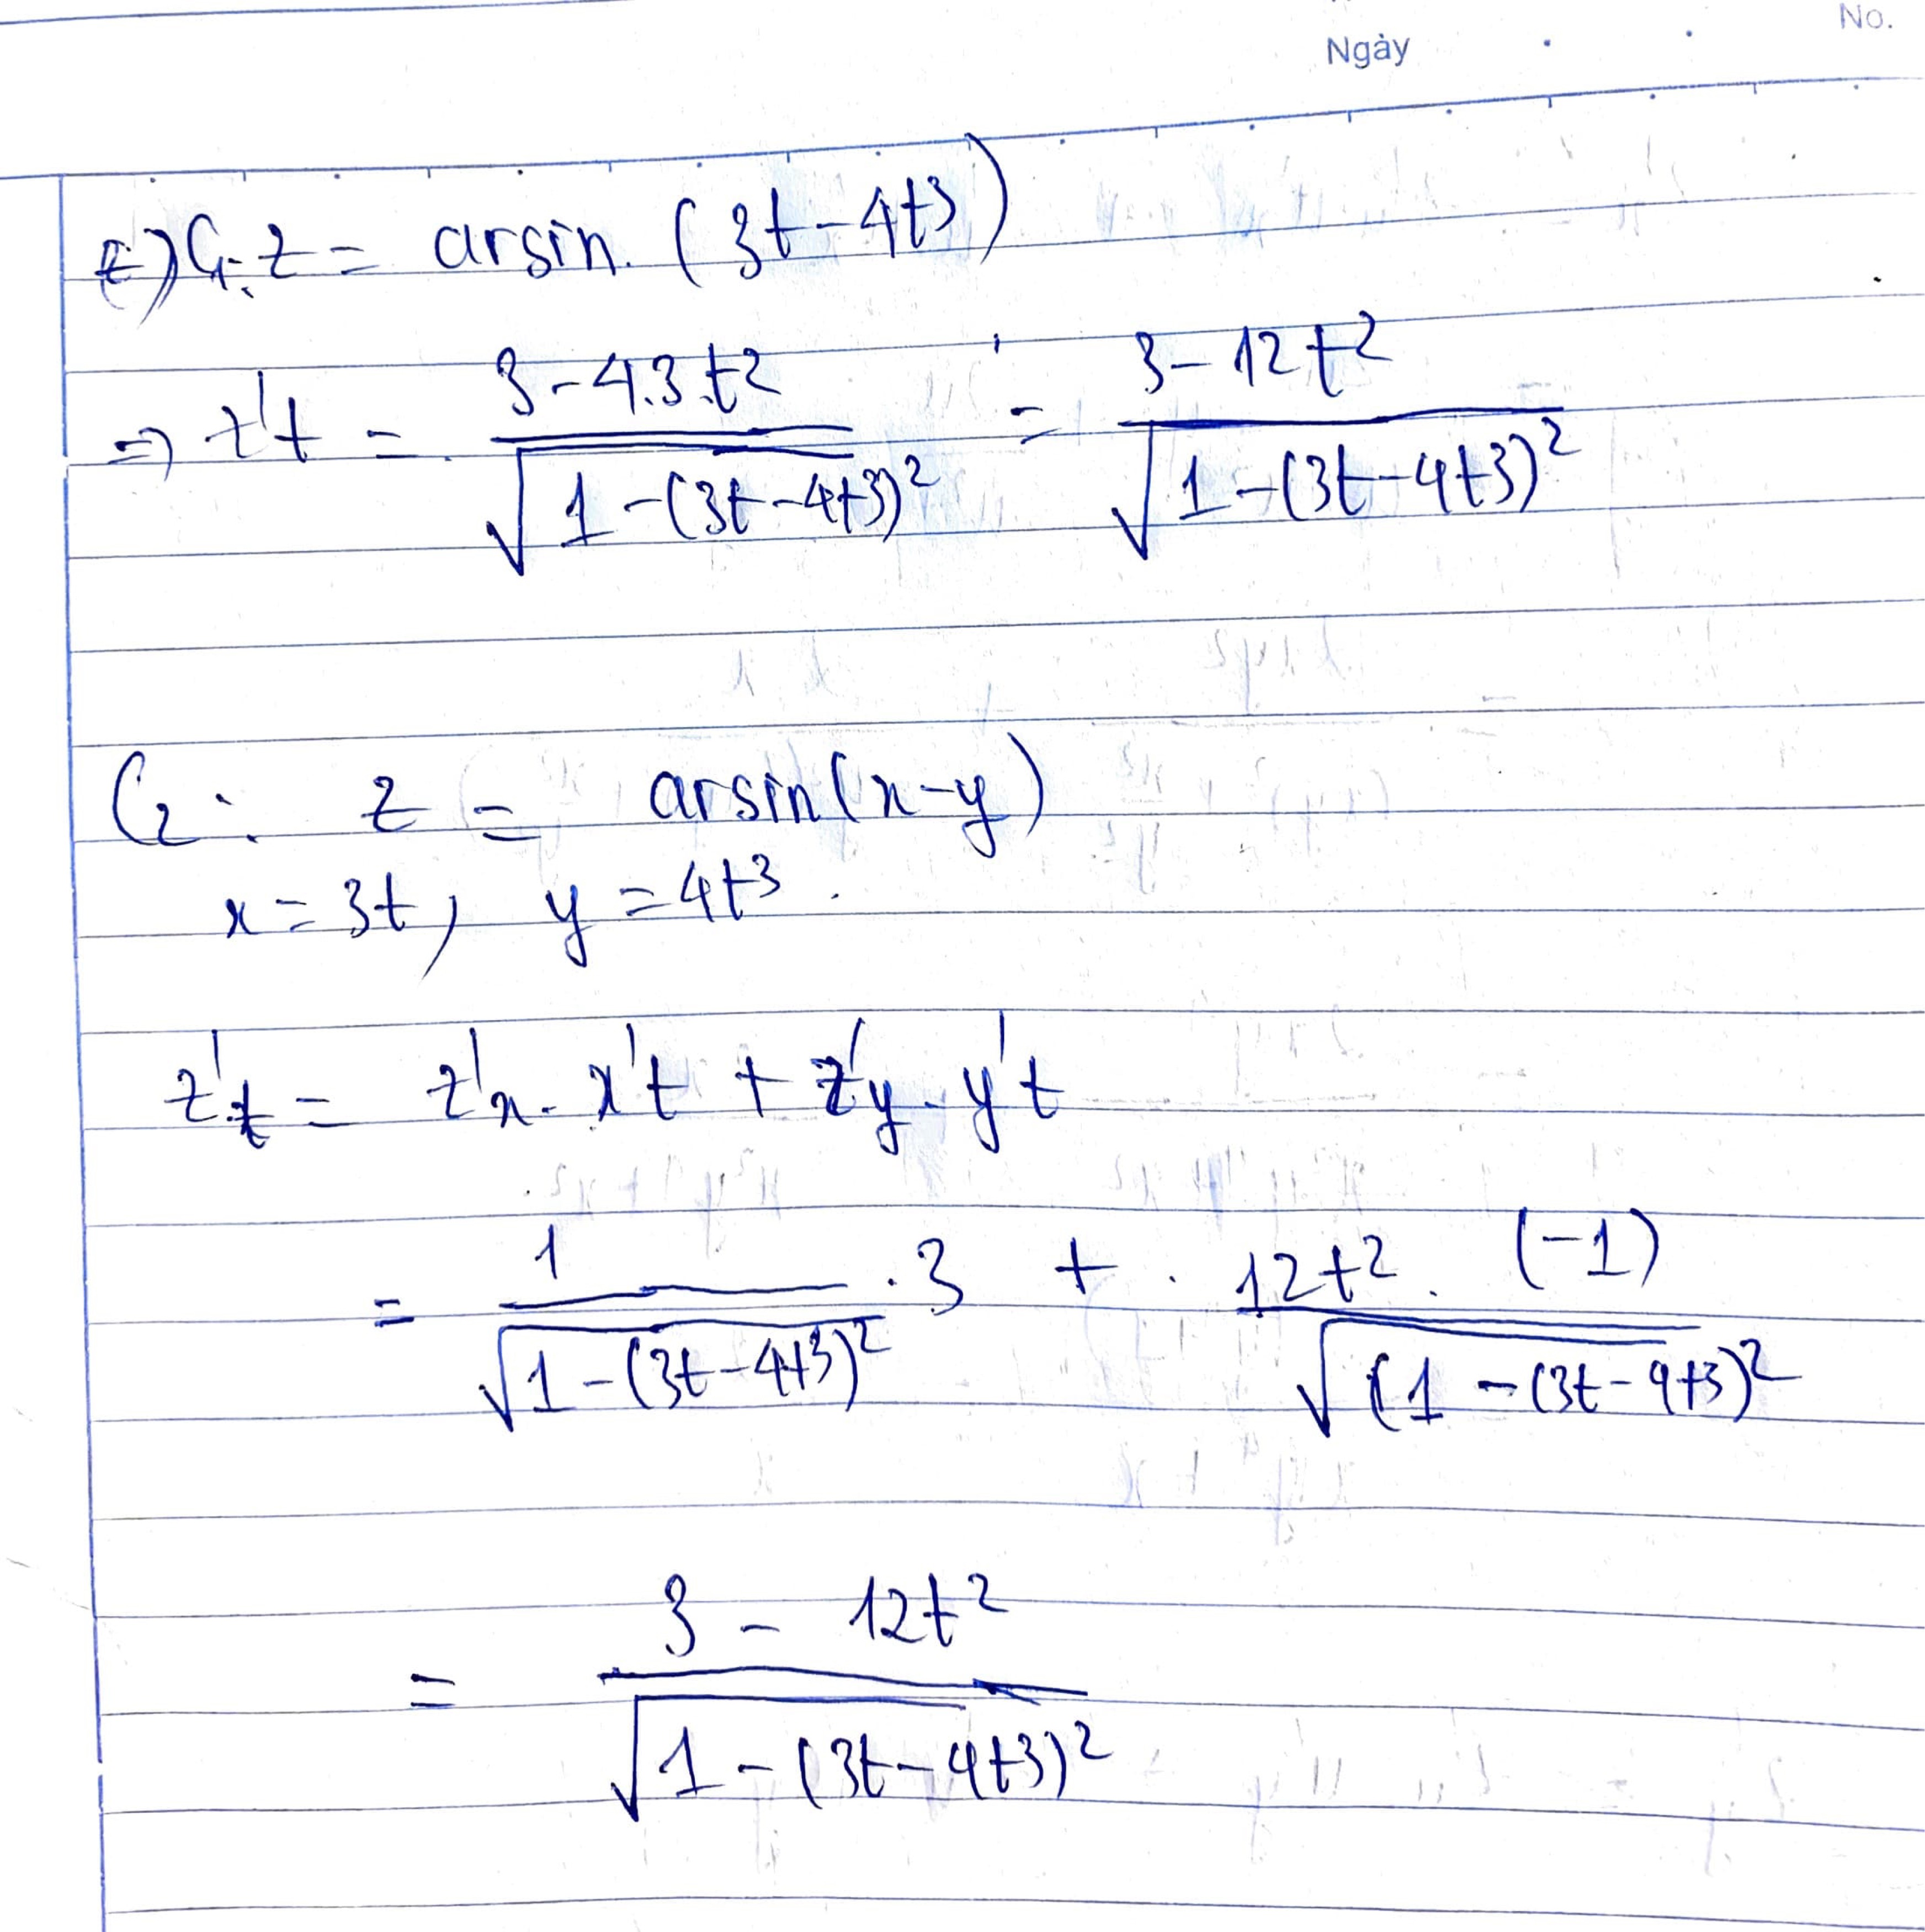 No.
Ngày
e) C1: z = arsin. (3t - 4t³)
⇒ z't = (3 - 4.3.t²) / √(1 - (3t - 4t³)²) = (3 - 12t²) / √(1 - (3t - 4t³)²)
C2: z = arsin(x-y)
x = 3t, y = 4t³.
z't = z'x. x't + z'y. y't
= 1 / √(1 - (3t - 4t³)²) . 3 + . 12t². (-1) / √((1 - (3t - 4t³)²
= (3 - 12t²) / √(1 - (3t - 4t³)²)